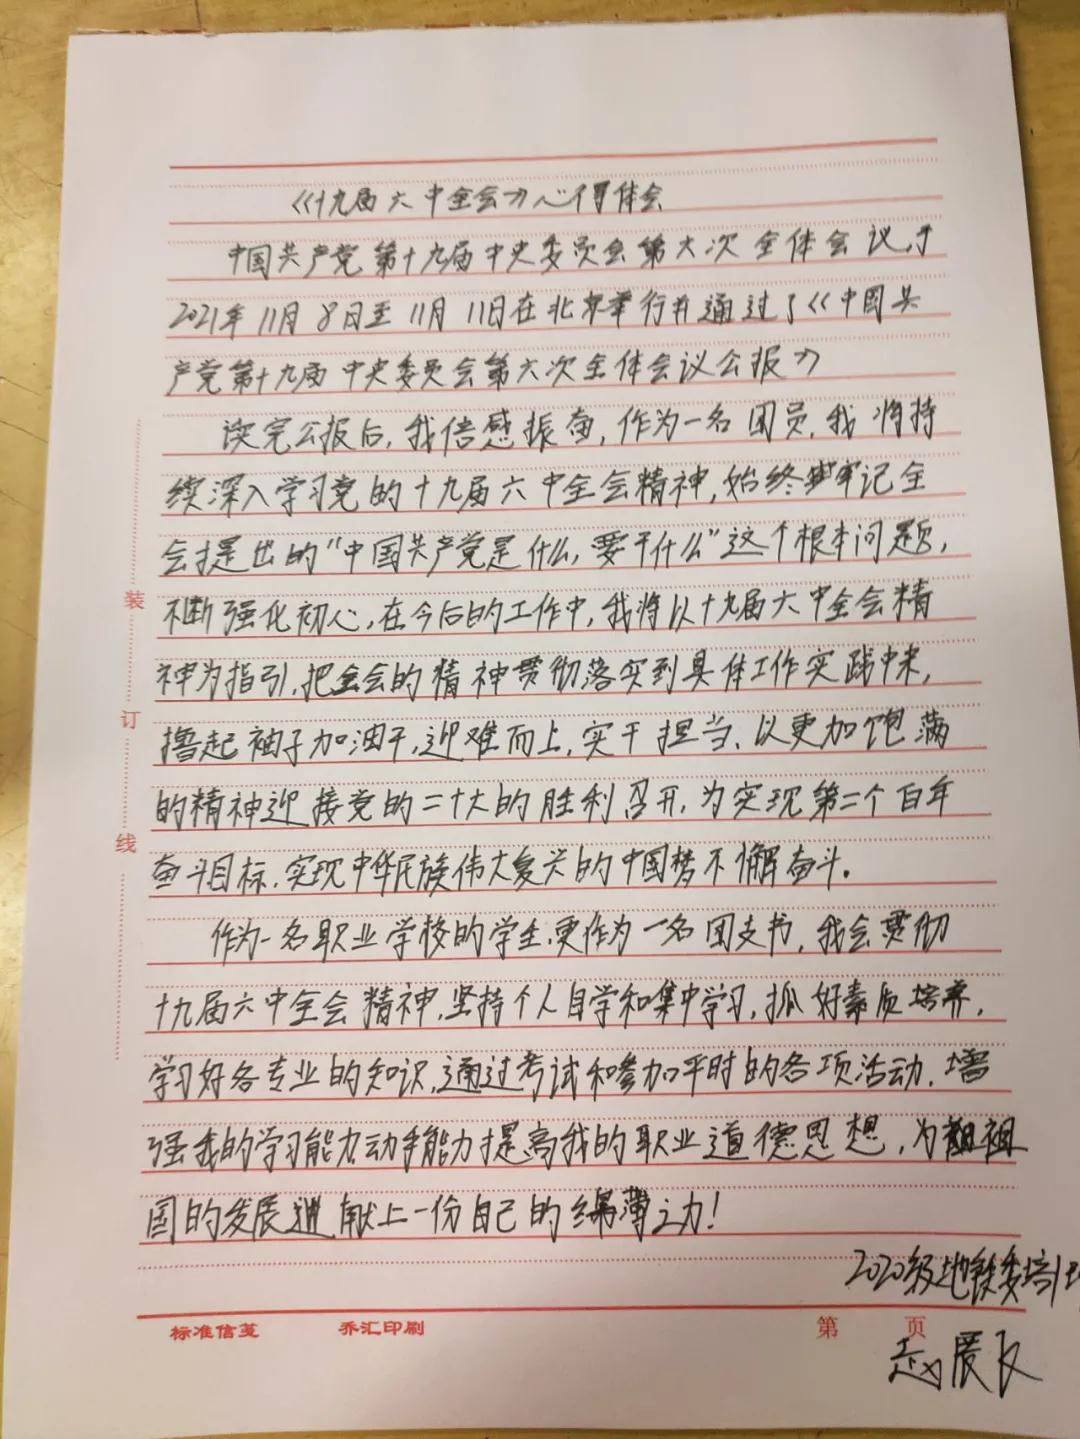 《十九届六中全会》心得体会
中国共产党第十九届中央委员会第六次全体会议,于
2021年11月8日至11月11日在北京举行并通过了《中国共
产党第十九届中央委员会第六次全体会议公报》
读完公报后,我倍感振奋,作为一名团员,我将持
续深入学习党的十九届六中全会精神,始终牢记全
会提出的“中国共产党是什么,要干什么”这个根本问题,
不断强化初心,在今后的工作中,我将以十九届六中全会精
神为指引,把全会的精神贯彻落实到具体工作实践中来,
撸起袖子加油干,迎难而上,实干担当、以更加饱满
的精神迎接党的二十大的胜利召开,为实现第二个百年
奋斗目标,实现中华民族伟大复兴的中国梦不懈奋斗。
作为一名职业学校的学生,更作为一名团支书,我会贯彻
十九届六中全会精神,坚持个人自学和集中学习,抓好素质培养,
学习好各专业的知识,通过考试和参加平时的各项活动,增
强我的学习能力动手能力提高我的职业道德思想,为祖
国的发展进献上一份自己的绵薄之力!
2020级地铁委培1班
赵展
装
订
线
标准信笺 乔汇印刷 第 页